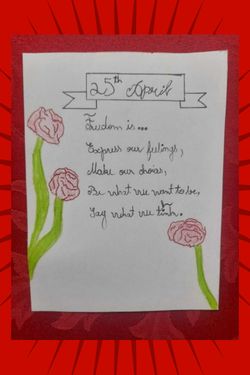 25th April
Freedom is...
Express our feelings,
Make our choices,
Be what we want to be,
Say what we think.